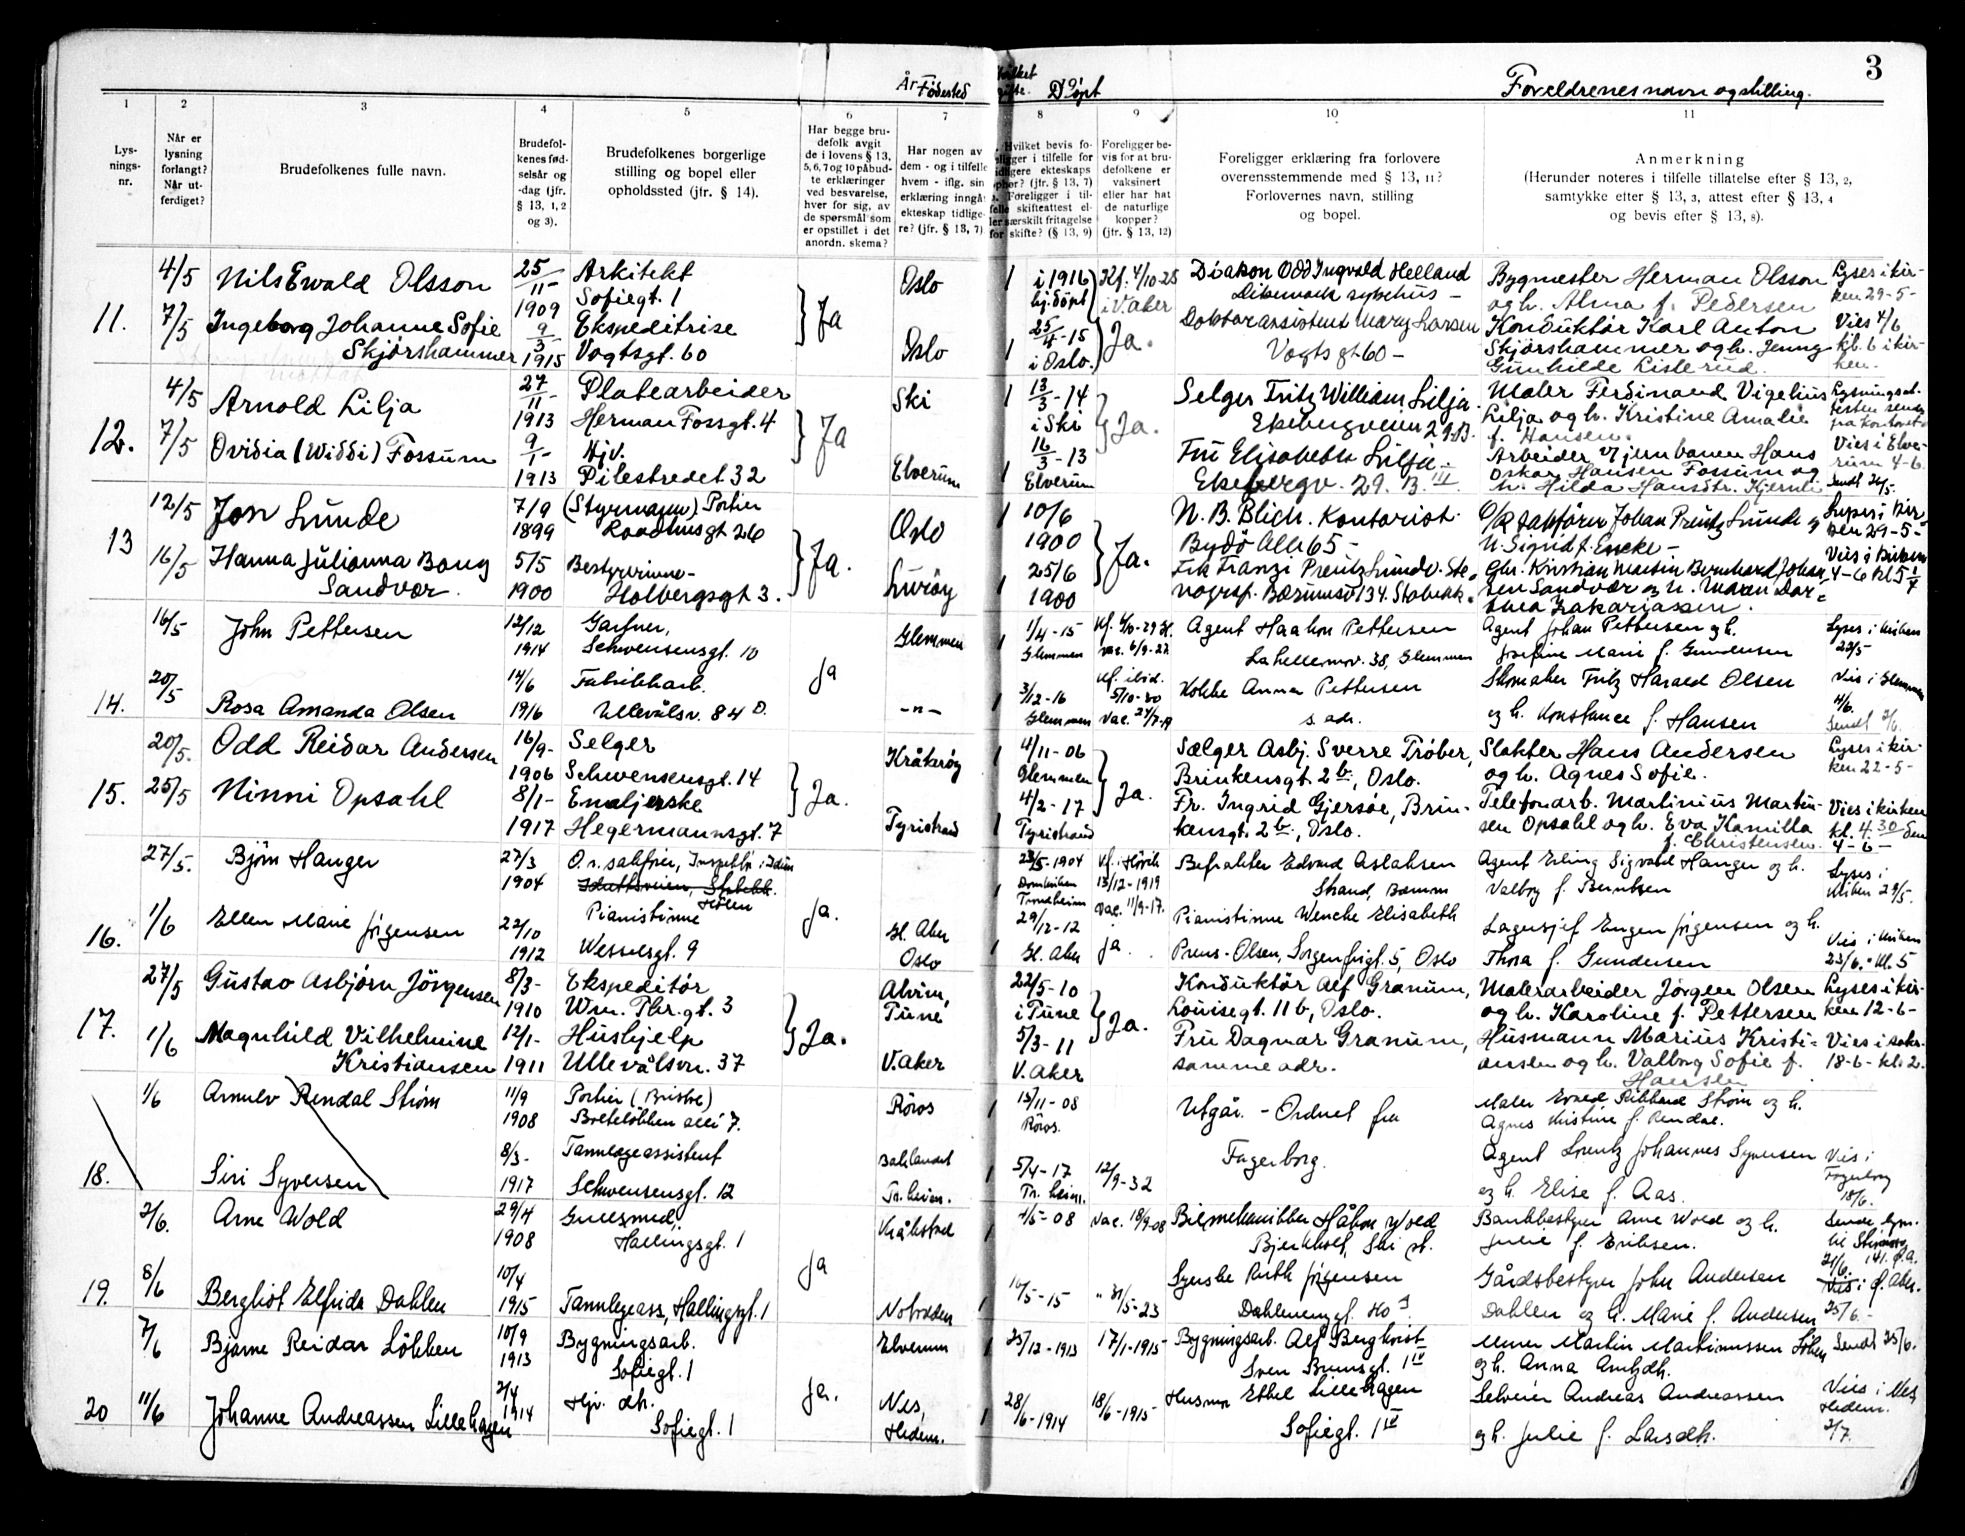 3
År Fødested
Döpt
Foreldrenes navn og stilling.
1 2 3 4 5 6 7 8 9 10 11
Lys-
nings-
nr.
Når er
lysning
forlangt?
Når ut-
ferdiget?
Brudefolkenes fulle navn.
Brudefol-
kenes fød-
selsår og
-dag (jfr.
§ 13, 1, 2
og 3).
Brudefolkenes borgerlige
stilling og bopel eller
opholdssted (jfr. § 14).
Har begge bru-
defolk avgit
de i lovens § 13,
5, 6, 7 og 10 påbud-
te erklæringer
ved besvarelse,
hver for sig, av
de spørsmål som
er opstillet i det
anordn. skema?
Har nogen av
dem - og i tilfelle
hvem - iflg. sin
erklæring inngå-
ekteskap tidlige-
re? (jfr. § 13, 7)
Hvilket bevis fo-
religger i tilfelle for
tidligere ekteskaps
ophør? (jfr. § 13, 7)
Foreligger i til-
felle skifteattest el-
ler særskilt fritagelse
for skifte? (§ 13, 9)
Foreligger be-
vis for at bru-
defolkene er
vaksinert
eller har hat
de naturlige
kopper?
(jfr. § 13, 12)
Foreligger erklæring fra forlovere
overensstemmende med § 13, 11?
Forlovernes navn, stilling
og bopel.
Anmerkning
(Herunder noteres i tilfelle tillatelse efter § 13, 2,
samtykke efter § 13, 3, attest efter § 13, 4
og bevis efter § 13, 8).
11.
4/5
7/5
Nils Ewald Olsson
25/11-
1909
Arkitekt
Sofiegt. 1
Ja
Oslo
i 1916
hj. döpt
Kf. 4/10-25
i V. Aker
Diakon Odd Ingvald Helland
Dikemark sykehus -
Bygmester Herman Olsson
og h. Alma f. Pedersen
Lyses i kir-
ken 29-5-
Ingeborg Johanne Sofie
Skjörshammer
9/3-
1915
Ekspeditrise
Vogtsgt. 60
Oslo
25/4-15
i Oslo.
Ja.
Doktorassistent Mary Larsen
Vogtsgt 60 -
Konduktør Karl Anton
Skjörshammer og h. Jenny
Gunhilde Listerud.
Vies 4/6
kl. 6 i kir-
ken.
12.
4/5
7/5
Arnold Lilja
27/11
1913
Platearbeider
Herman Fossgt. 4
Ja
Ski
13/3-14
i Ski
Ja.
Selger Fritz William Lilja.
Ekebergveien 29B.
Maler Ferdinand Vigelius
Lilja og h. Kristine Amalie
f. Hansen.
Ovidia (Widdi) Fossum
9/1-
1913
Hjv.
Pilestredet 32
Elverum
16/3-13
Elverum
Fru Elisabeth Lilja -
Ekebergv. 29. B. III
Arbeider v/jernbanen Hans
Oskar Hansen Fossum og
h. Hilda Hansdtr. Kjernli
Vies i Elve-
rum 4-6.
Sendt 26/5.
13
12/5
16/5
Jon Lunde
7/9
1899
(Styrmann) Portier
Raadhusgt 26
Ja.
Oslo
10/6
1900
Ja.
N. B. Blich. Kontorist.
Bygdö Alle 65 -
O/R sakfører Johan Preutz Lunde og
h. Sigrid f. Encke -
Lyses i Kir-
ken 29-5-
Hanna Julianna Bang
Sandvær.
5/5
1900
Bestyrerinne -
Holbergsgt 3.
Luröy
25/6
1900
Frk Franzi Preutz Lunde. Ste-
nogrf. Bærumsv 134. Stabekk.
Ghr. Kristian Martin Bernhard Johan-
sen Sandvær og h. Maren Dor-
thea Zakariassen.
Vies i Kirken
4-6 kl 5 1/4
14.
16/5
20/5
John Pettersen
12/12
1914
Gartner,
Schwensensgt. 10
Ja
Glemmen
1/4-15
Glemmen
Agent Haakon Pettersen
38, Glemmen
Agent Johan Pettersen og h.
Josefine Marie f. Gundersen
Lyses i kirken
22/5
Rosa Amanda Olsen
14/6
1916
Fabrikkarb.
Ullevålsv. 84 D.
-"-
3/12-16
Glemmen
Kf. ibid.
5/10-30
Kokke Anna Pettersen
s. adr.
Skomaker Fritz Harald Olsen
og h. Konstance f. Hansen
Vies i Glemmen
4/6.
15.
20/5.
25/5
Odd Reidar Andersen
16/9-
1906
Selger
Schwensensgt. 14
Ja.
Kråkeröy
4/11-06
Glemmen
Ja.
Sælger Asbj. Sverre Tröber,
Brinkensgt. 2b, Oslo.
Slakter Hans Andersen
og h. Agnes Sofie.
Lyses i kir-
ken 22-5-
Ninni Opsahl
8/1-
1917
Emaljerske
Hegermannsgt. 7
Tyristrand
4/2-17
Tyristrand
Fr. Ingrid Gjersøe, Brin-
kensgt. 2b, Oslo.
Telefonarb. Martinius Martin-
sen Opsahl og h. Eva Kamilla
f. Christensen.
Vies i kirken
kl. 4.30 den
4-6-
16.
27/5.
1/6
Björn Hanger
27/3
1904
O. r. sakfører,
Ja.
23/5-1904
Domkirken
Trondheim
13/12-1919
Vac. 11/9-17.
Befrakter Edvard Aslaksen
Strand, Bærum
Agent Erling Sigvald Hanger og h.
Valborg f. Berntsen
Lyses i
kirken 29/5.
Ellen Marie Jörgensen
22/10
1912
Pianistinne
Wesselsgt. 9
Gl. Aker
Oslo
29/12-12
Gl. Aker
Ja.
Pianistinne Wencke Elisabeth
Prens-Olsen, Sorgenfrigt. 5, Oslo
Lagersjef Eugen Jörgensen og h.
Thora f. Gundersen
Vies i kirken
23/6. kl. 5
17.
27/5
1/6
Gustav Asbjörn Jörgensen
8/3-
1910
Ekspeditör
Wm. Thr. gt. 3
Ja.
Alvim,
Tune
22/5-10
i Tune
Ja.
Konduktör Alf Granum,
Louisegt. 11 b, Oslo.
Malerarbeider Jörgen Olsen
og h. Karoline f. Pettersen
Lyses i kir-
ken 12-6-
Magnhild Vilhelmine
Kristiansen
12/1-
1911
Hushjelp
Ullevålsvn. 37
V. Aker
5/3-11
V. Aker
Fru Dagmar Granum,
samme adr.
Husmann Marius Kristi-
ansen og h. Valborg Sofie f.
Hansen
Vies i sakr.
18-6- kl. 2.
18.
1/6
Arnulv Rendal Ström
11/9
1908
Portier (Bristol)
7.
Röros
15/11-08
Röros.
Utgår. - Ordnet fra
Fagerborg.
Maler Rikhard Ström og h.
Agnes Kristine f. Rendal.
Siri Syversen
8/3-
1917
Tannlegeassistent
Schwensensgt. 12
Bakklandet
Tr. heim.
5/4-17
Tr. heim.
12/9-32
Agent Lorentz Johannes Syversen
og h. Elise f. Aas.
Vies i
Fagerborg
18/6.
19.
2/6.
8/6
Arne Wold
29/4
1908
Gullsmed,
Hallingsgt. 1
Ja
Kråkstad
4/5-08
Vac. 18/9-08
Håkon Wold
Ski st.
Bankbestyrer Arne Wold og h.
Julie f. Eriksen.
Bergliot Elfrida Dahlen
10/4
1915
Tannlegeass, Hallingsgt. 1
Notodden
16/5-15
" 31/5-23
Syerske Ruth Jörgensen
Gårdsbestyrer John Andersen
Dahlen og h. Marie f. Andersen
25/6-
20
7/6
11/6
Bjarne Reidar Lökken
10/9
1913
Bygningsarb.
Sofiegt. 1
Ja.
Elverum
25/12-1913
17/1-1915-
Bygningsarb. Alf Berghvist
Sven Brunsgt. 1 IV
Murer Martin Martinussen Löken
og h. Anna
Sendt 25/6.
Johanne Andreassen Lillehagen
2/4
1914
Hjv. dtr.
Sofiegt. 1
Nes,
Hedem.
28/6-1914
18/6-1915-
Husmor Ethel Lillehagen
Sofiegt. 1 IV
Selveier Andreas Andreassen
og h. Julie f. Larsdtr.
Vies i Nes,
Hedem.
2/7.